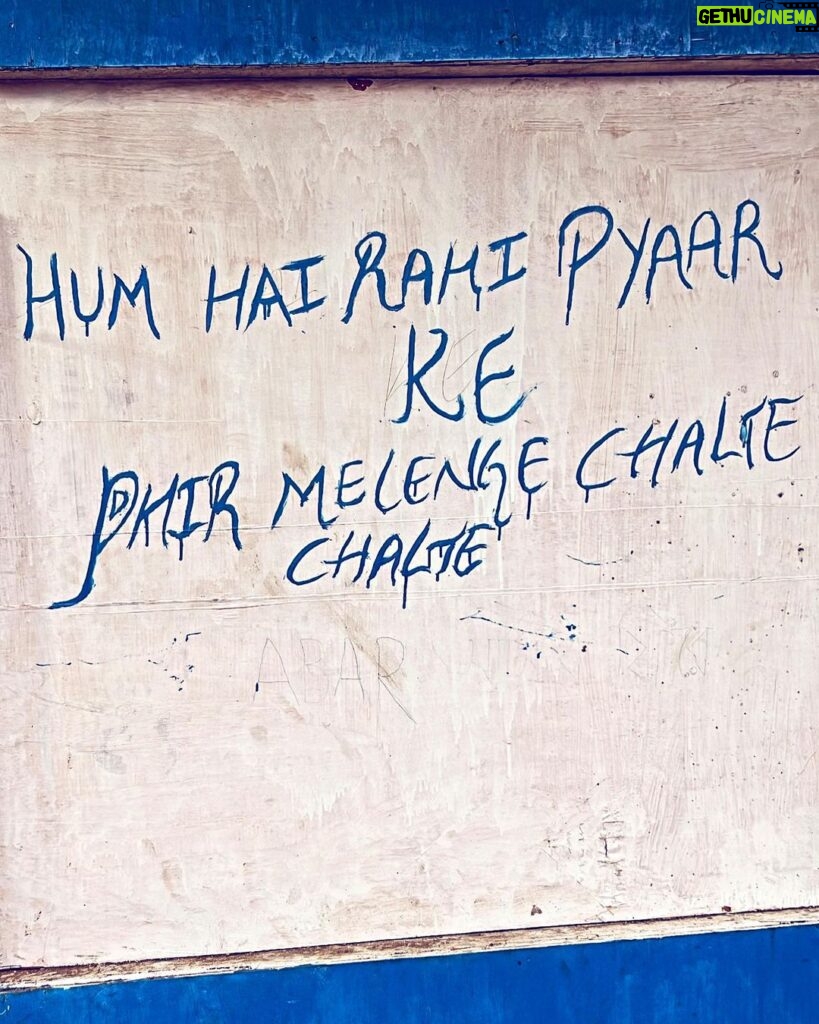 GETHUCINEMA
HUM HAI RAHI PYAAR
KE
PHIR MELENGE CHALTE
CHALTE
ABAR